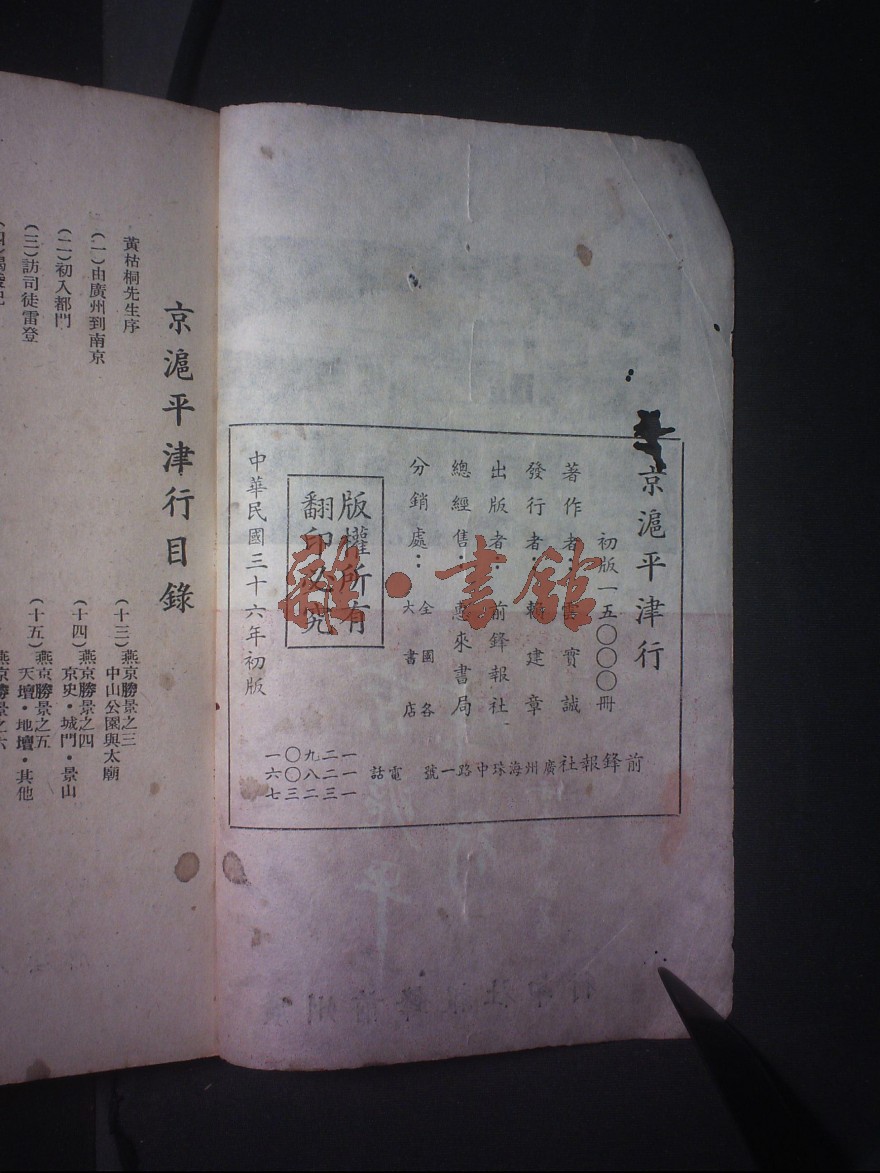 京滬平津行
初版一五〇〇〇冊
著作者：雲實誠
發行者：建章
出版者：前鋒報社
總經售：惠來書局
分銷處：全國各大書店
版權所有
翻印必究
中華民國三十六年初版
前鋒報社廣州海珠中路一號 電話
一二九〇一
一二八〇六
一三二三七
雜·書館
京滬平津行目錄
黃枯桐先生序
(一)由廣州到南京
(二)初入都門
(三)訪司徒雷登
(十三)燕京勝景之三
中山公園與太廟
(十四)燕京勝景之四
京史·城門·景山
(十五)燕京勝景之五
天壇·地壇·其他
燕京勝景之六